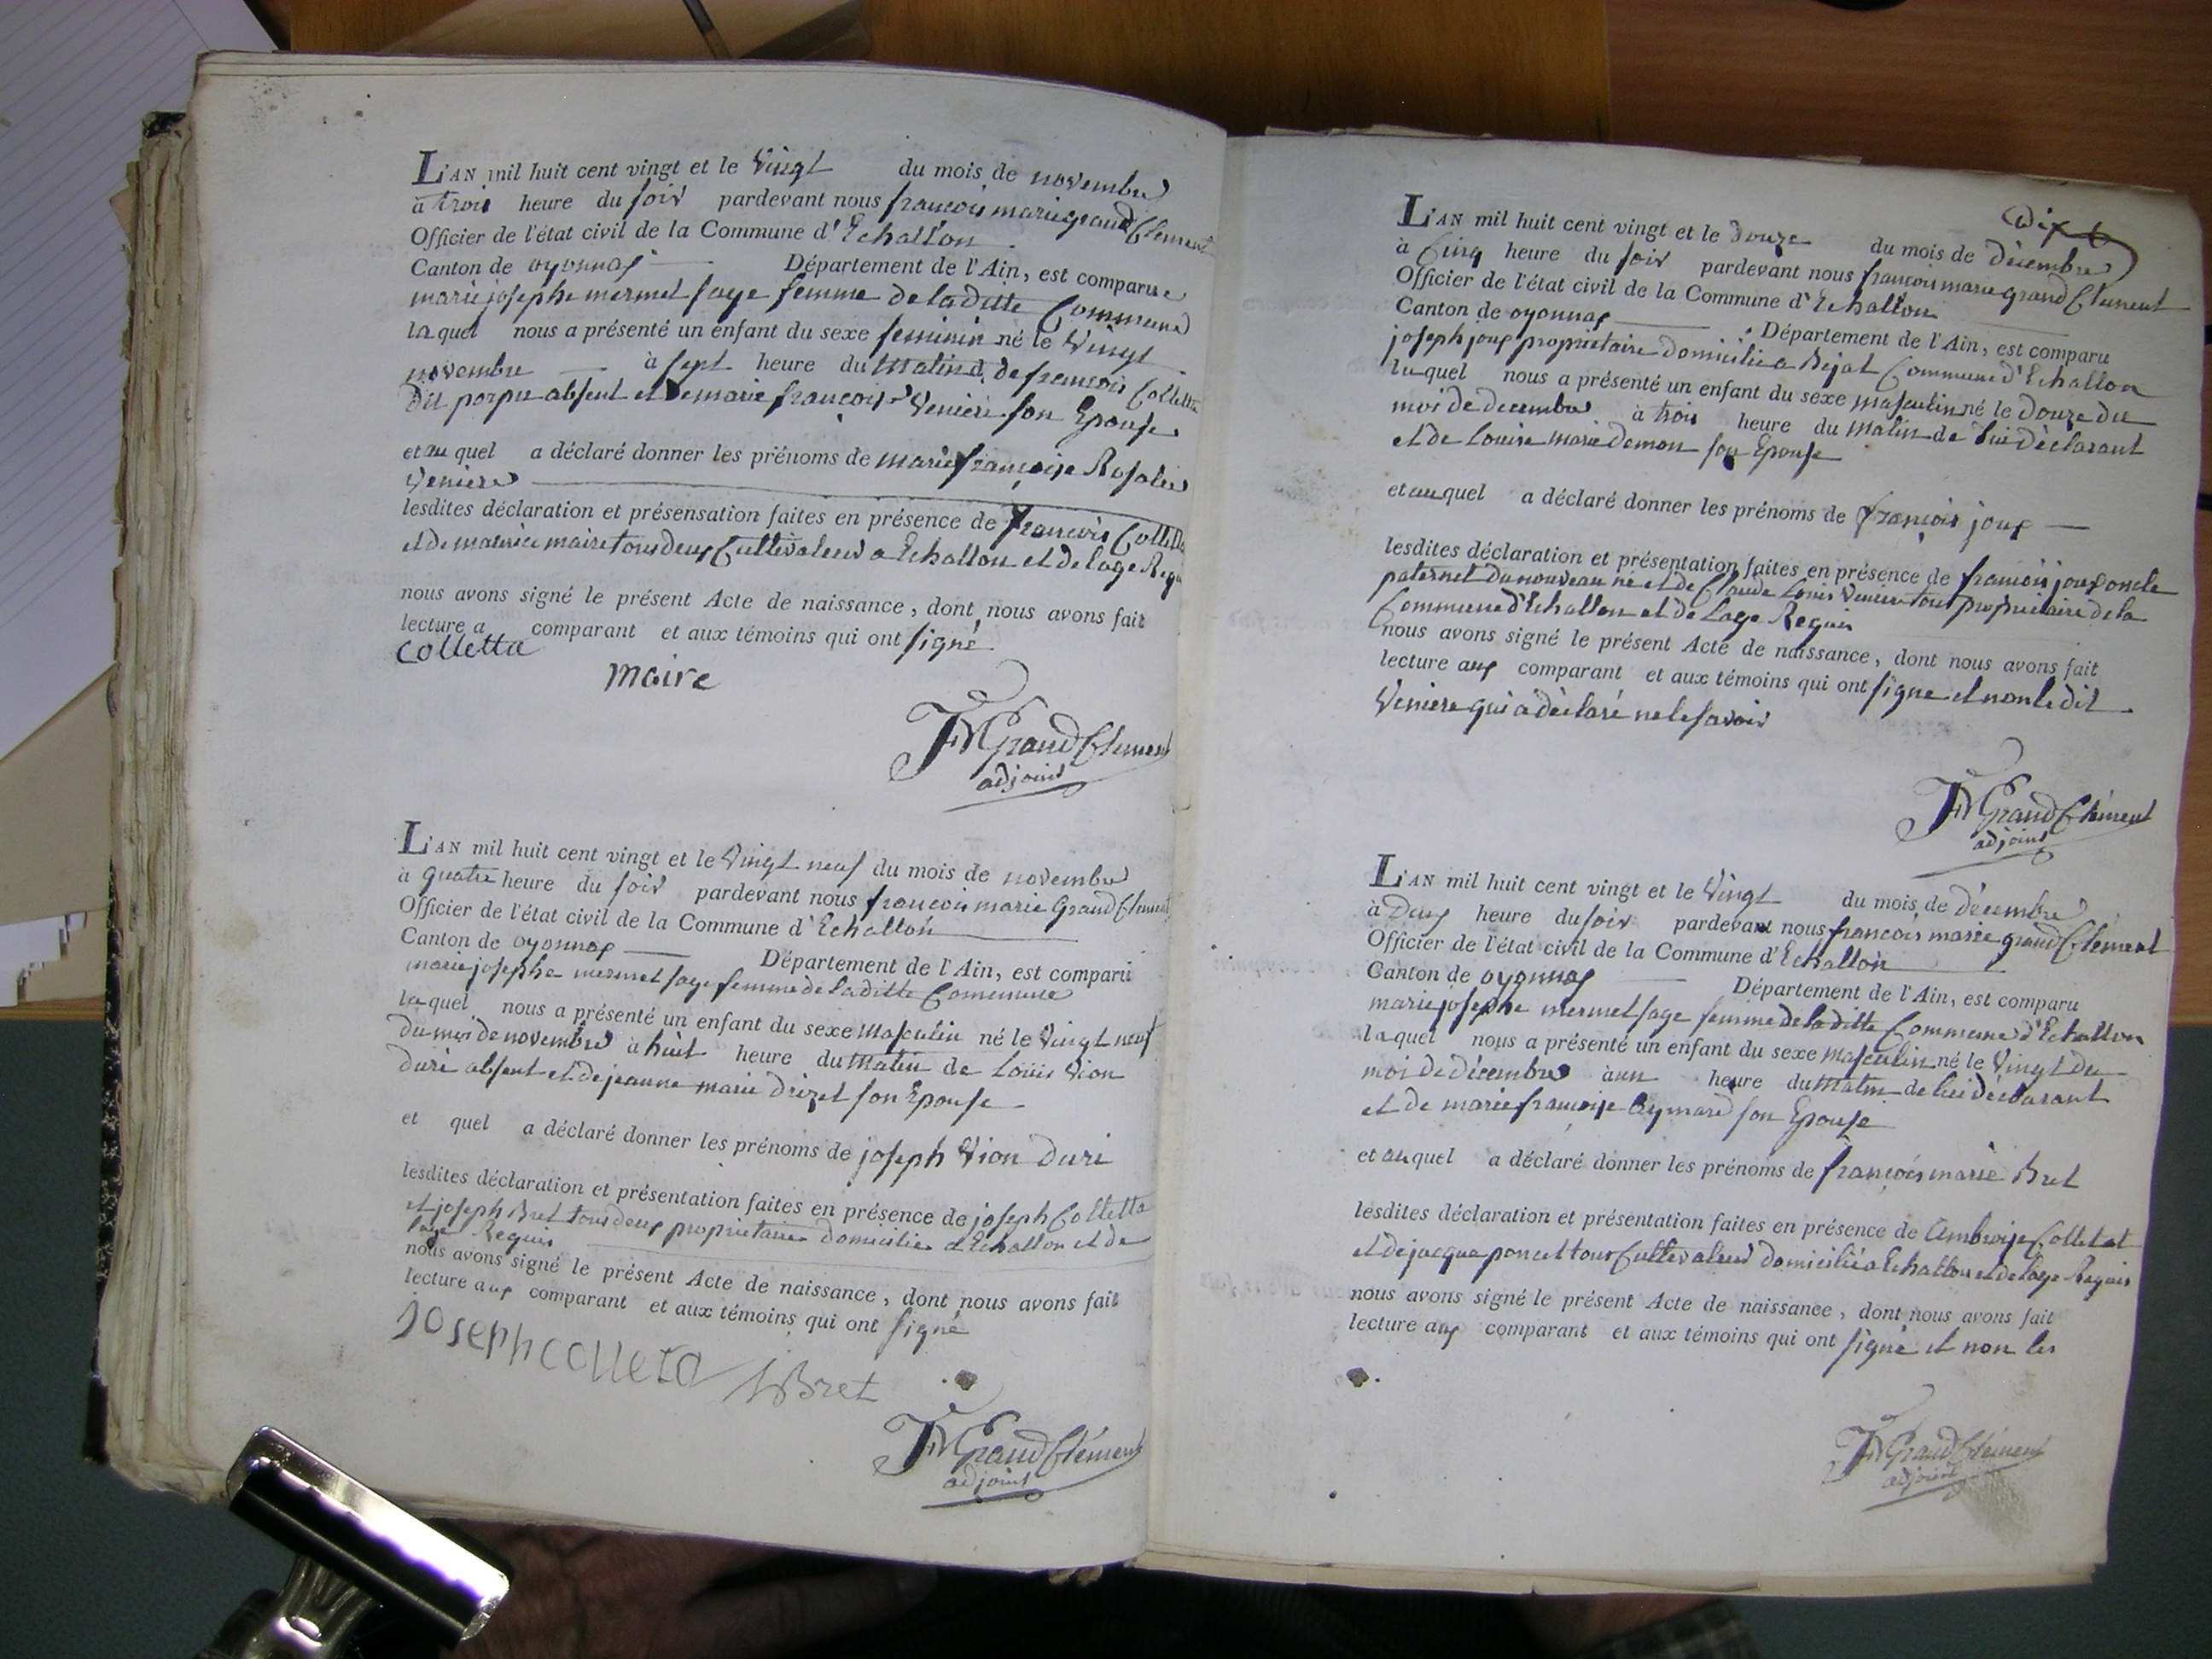 L'AN mil huit cent vingt et le Vingt du mois de novembre
à trois heure du soir pardevant nous francois marie grand Clement
Officier de l'état civil de la Commune d'Echallon
Canton de oyonnax Département de l'Ain, est comparue
marie josephe mermet sage femme de laditte Commune
laquel nous a présenté un enfant du sexe feminin né le Vingt
novembre à sept heure du Matin de francois Colletta
dit absent et de marie françoise Veniere son Epouse
et au quel a déclaré donner les prénoms de marie françoise Rosalie
Veniere
lesdites déclaration et présensation faites en présence de francois Colletta
et de maurice maire tous deux Cultivateur a Echallon et de lage Requi
nous avons signé le présent Acte de naissance, dont nous avons fait
lecture a comparant et aux témoins qui ont signé
Colletta
maire
FM Grand Clement
adjoint
L'AN mil huit cent vingt et le Vingt neuf du mois de novembre
à quatre heure du soir pardevant nous francois marie Grand Clement
Officier de l'état civil de la Commune d'Echallon
Canton de oyonnax Département de l'Ain, est comparu
marie josephe mermet sage femme de laditte Commune
laquel nous a présenté un enfant du sexe masculin né le Vingt neuf
du mois de novembre à huit heure du Matin de Louis Vion
duri absent et de jeanne marie Drizet son Epouse
et quel a déclaré donner les prénoms de joseph Vion Duri
lesdites déclaration et présentation faites en présence de joseph Colletta
et joseph Bret tous deux proprietaire domicilie a Echallon et de
lage Requis
nous avons signé le présent Acte de naissance, dont nous avons fait
lecture aux comparant et aux témoins qui ont signé
joseph colleta JBret
FM Grand Clément
adjoint
dix
L'AN mil huit cent vingt et le douze du mois de décembre
à Cinq heure du soir pardevant nous francois marie grand Clement
Officier de l'état civil de la Commune d'Echallon
Canton de oyonnax Département de l'Ain, est comparu
joseph joux proprietaire domicilie a Commune d'Echallon
lequel nous a présenté un enfant du sexe masculin né le Douze du
mois de decembre à trois heure du Matin de lui déclarant
et de Louise marie son Epouse
et auquel a déclaré donner les prénoms de François joux
lesdites déclaration et présentation faites en présence de francois joux oncle
paternel du nouveau né et de Claude Louis Veniere tous proprietaire de la
Commune d'Echallon et de Lage Requis
nous avons signé le présent Acte de naissance, dont nous avons fait
lecture aux comparant et aux témoins qui ont signe et non le dit
Veniere qui a déclaré ne le savoir
FM Grand Clément
adjoint
L'AN mil huit cent vingt et le Vingt du mois de décembre
à Deux heure du soir pardevant nous francois marie grand Clement
Officier de l'état civil de la Commune d'Echallon
Canton de oyonnax Département de l'Ain, est comparu
marie josephe mermet sage femme de laditte Commune d'Echallon
laquel nous a présenté un enfant du sexe masculin né le Vingt du
mois de décembre à un heure du Matin de lui déclarant
et de marie françoise Aymard son Epouse
et auquel a déclaré donner les prénoms de françois marie Bret
lesdites déclaration et présentation faites en présence de Ambroise Colletat
et de jacque poncet tous Cultivateur domicilié a Echallon et de lage Requis
nous avons signé le présent Acte de naissance, dont nous avons fait
lecture aux comparant et aux témoins qui ont signé et non les
FM Grand Clément
adjoint